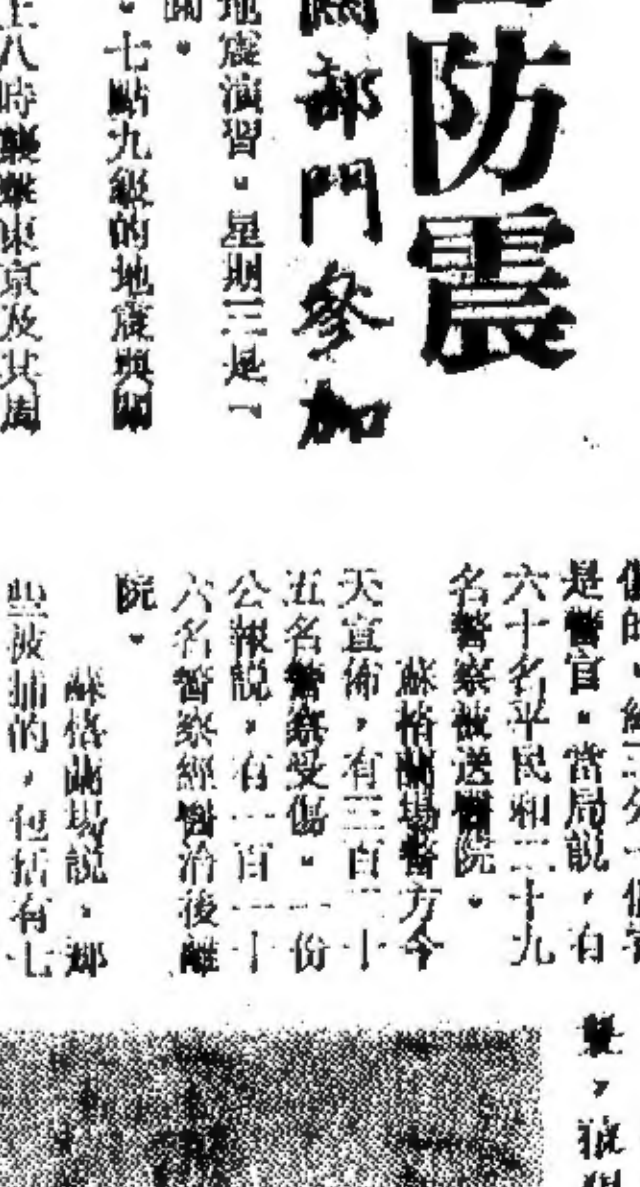 防震
部門參加
地震演習。星期三是一
關。
。七點九級的地震與關
上八時襲擊東京及其周
是警官。當局說,有
六十名平民和二十九
名警察被送醫院。
蘇格蘭場警方今
天宣佈,有三百二十
五名警察受傷。一份
公報說,有一百一十
六名警察經醫治後離
院。
蘇格蘭場說,那
些被捕的,包括有七
擊,